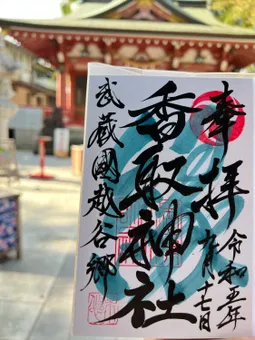 奉拝
令和五年
六月十七日
香取神社
武蔵國越谷郷